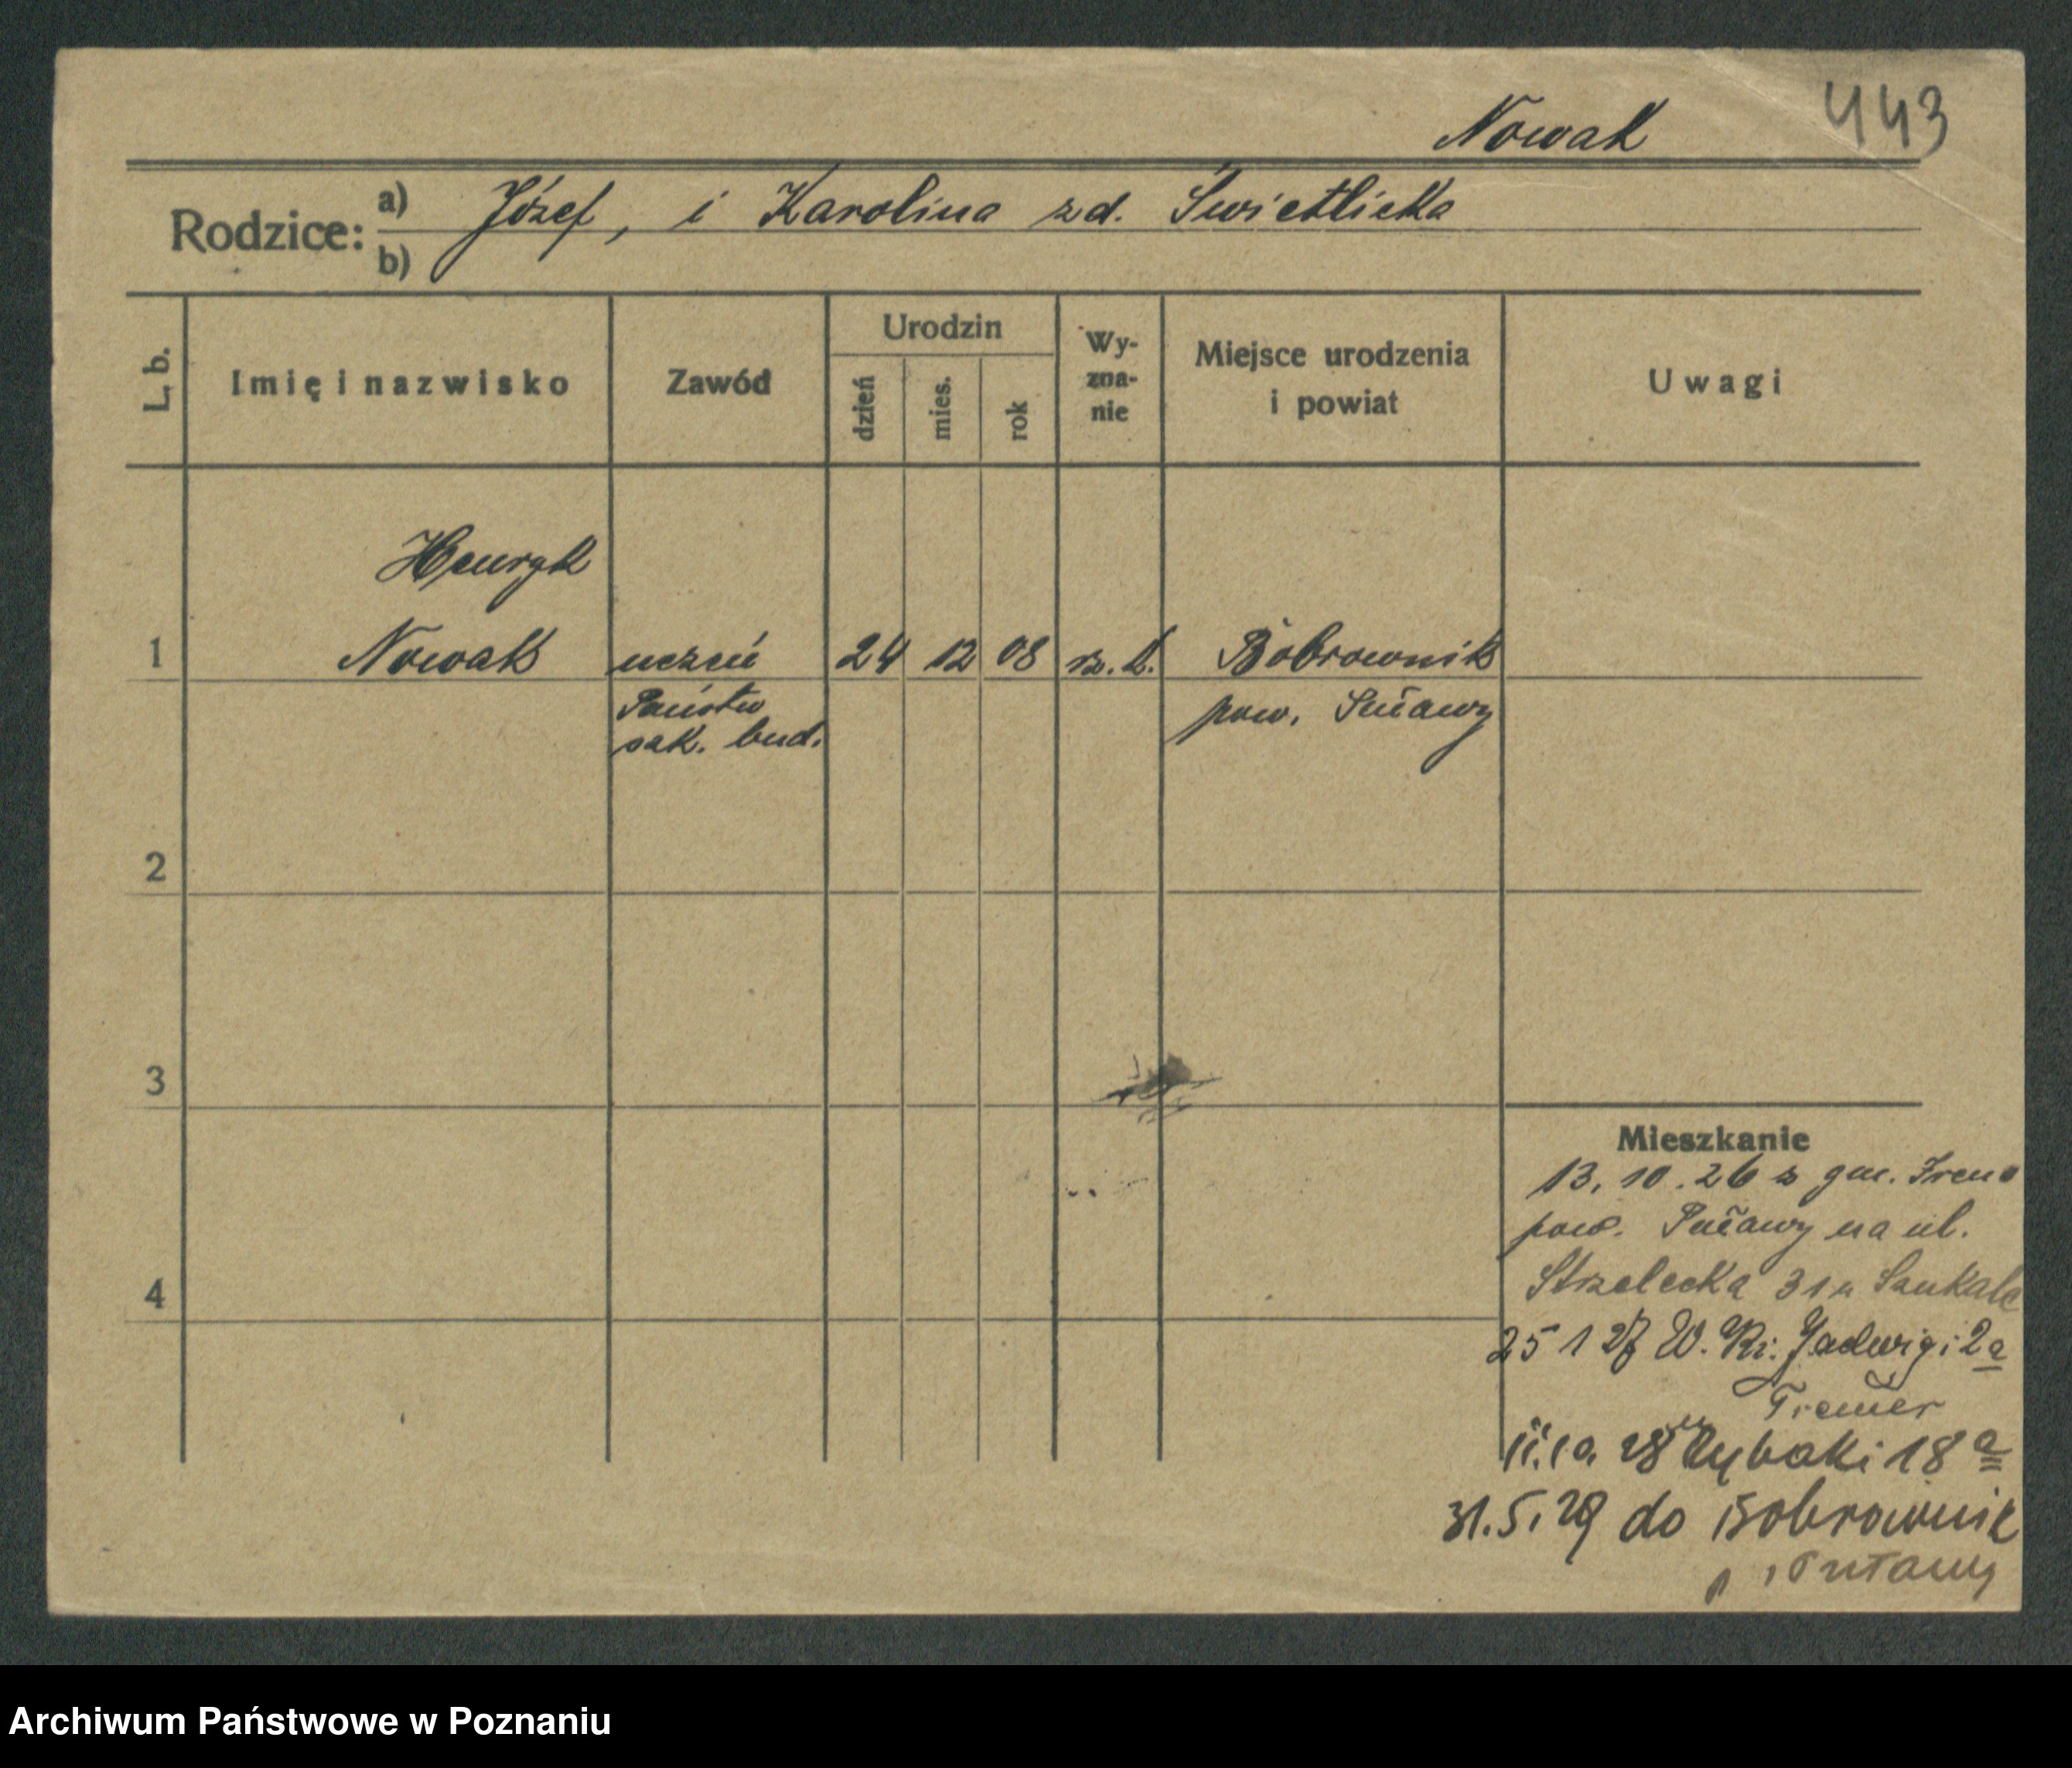 443
Nowak
Rodzice: a) Józef, i Karolina zd. Świetlicka
b)
L. b.
Imię i nazwisko
Zawód
Urodzin
dzień
mies.
rok
Wy-
zna-
nie
Miejsce urodzenia
i powiat
Uwagi
Henryk
1 Nowak uczeń 24 12 08 rz. k. Bobrownik
Państw pow. Puławy
szk. bud.
2
3
4
Mieszkanie
13. 10. 26 z gm. Irena
pow. Puławy na ul.
Strzelecka 31 u
25 1 27 W. Kr. Jadwigi 2a
28 Rybaki 18a
31.5.29 do Bobrownik
p. Puławy
Archiwum Państwowe w Poznaniu